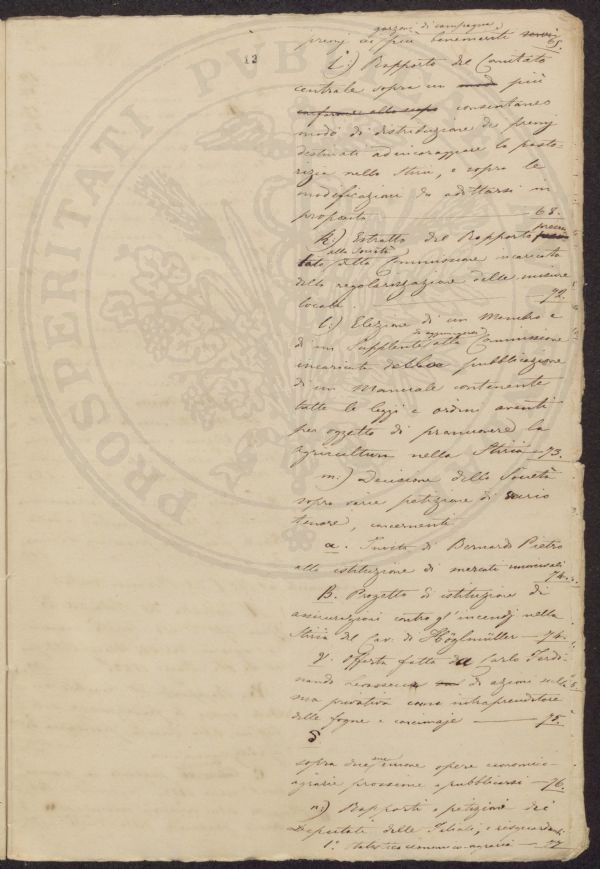 garzoni di campagna
premj ai più benemeriti 65.
12
i.) Rapporto del Comitato
centrale sopra un più
consentaneo
modo di distribuzione de premj
destinati ad incoraggiare la pasto-
rizia nella Stiria, e sopra le
modificazioni da adottarsi in
proposito 68.
k.) Estratto del Rapporto presen
alla Società
tato dalla Commissione incaricata
della regolarizzazione delle misure
locali. 72.
l.) Elezione di un Membro e
di un Supplente da aggiungersi alla Commissione
incaricata della pubblicazione
di un Manuale contenente
tutte le leggi e ordini aventi
per oggetto di promuovere la
agricoltura nella Stiria 73.
m.) Decisione della Società
sopra varie petizioni di vario
tenore, concernenti
α. Invito di Bernardo Pietro
alla istituzione di mercati 74.
B. Progetto di istituzione di
assicurazioni contro gl'incendj nella
Stiria del Cav. di Höglmüller 74.
γ. Offerta fatta da Carlo Ferdi-
nando di azioni sulla
sua privativa come intraprenditore
delle fogne e 75.
δ
sopra opere economico-
agrarie prossime a pubblicarsi 76.
n.) Rapporti e petizioni dei
Deputati delle Filiali, e risguardanti
1° economico-agraria 77
PROSPERITATI PVBLICAE